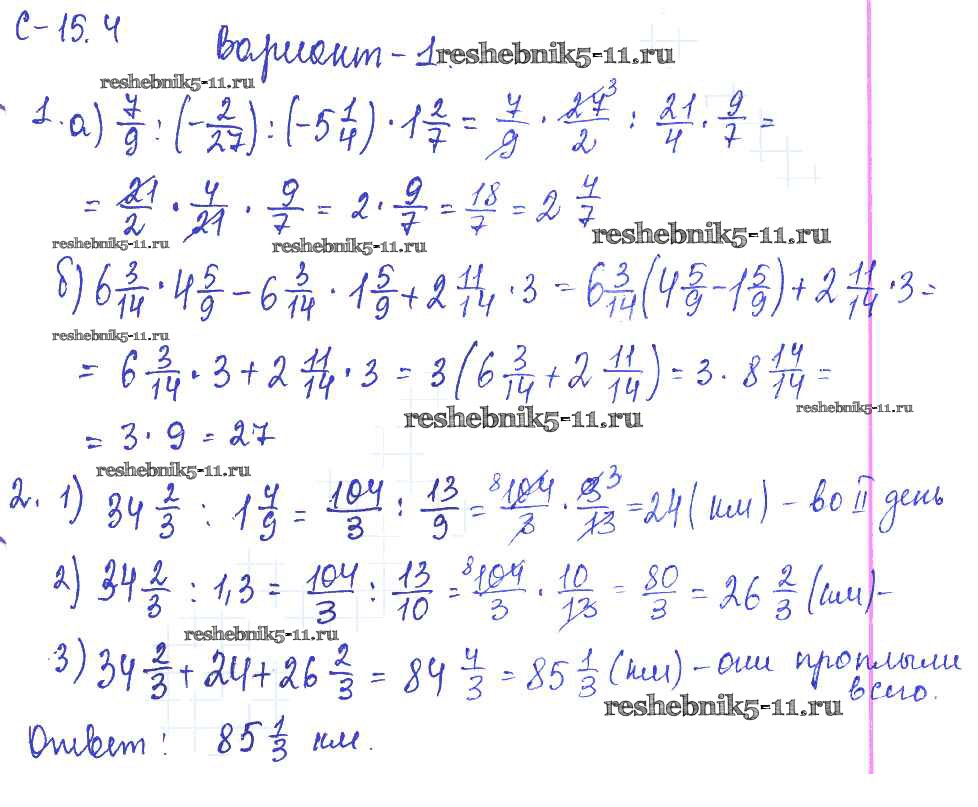 С-15.4
Вариант-1. reshebnik5-11.ru
reshebnik5-11.ru
1. а) 7/9 : (-2/27) : (-5 1/4) · 1 2/7 = 7/9 · 27³/2 : 21/4 · 9/7 =
= 21/2 · 4/21 · 9/7 = 2 · 9/7 = 18/7 = 2 4/7
reshebnik5-11.ru reshebnik5-11.ru reshebnik5-11.ru
б) 6 3/14 · 4 5/9 - 6 3/14 · 1 5/9 + 2 11/14 · 3 = 6 3/14 (4 5/9 - 1 5/9) + 2 11/14 · 3 =
reshebnik5-11.ru
= 6 3/14 · 3 + 2 11/14 · 3 = 3 (6 3/14 + 2 11/14) = 3 · 8 14/14 =
reshebnik5-11.ru reshebnik5-11.ru
= 3 · 9 = 27
reshebnik5-11.ru
2. 1) 34 2/3 : 1 4/9 = 104/3 : 13/9 = ⁸104/3 · 9³/13 = 24 (км) - во II день
2) 34 2/3 : 1,3 = 104/3 : 13/10 = ⁸104/3 · 10/13 = 80/3 = 26 2/3 (км) -
reshebnik5-11.ru
3) 34 2/3 + 24 + 26 2/3 = 84 4/3 = 85 1/3 (км) - они проплыли
всего.
reshebnik5-11.ru
Ответ: 85 1/3 км.